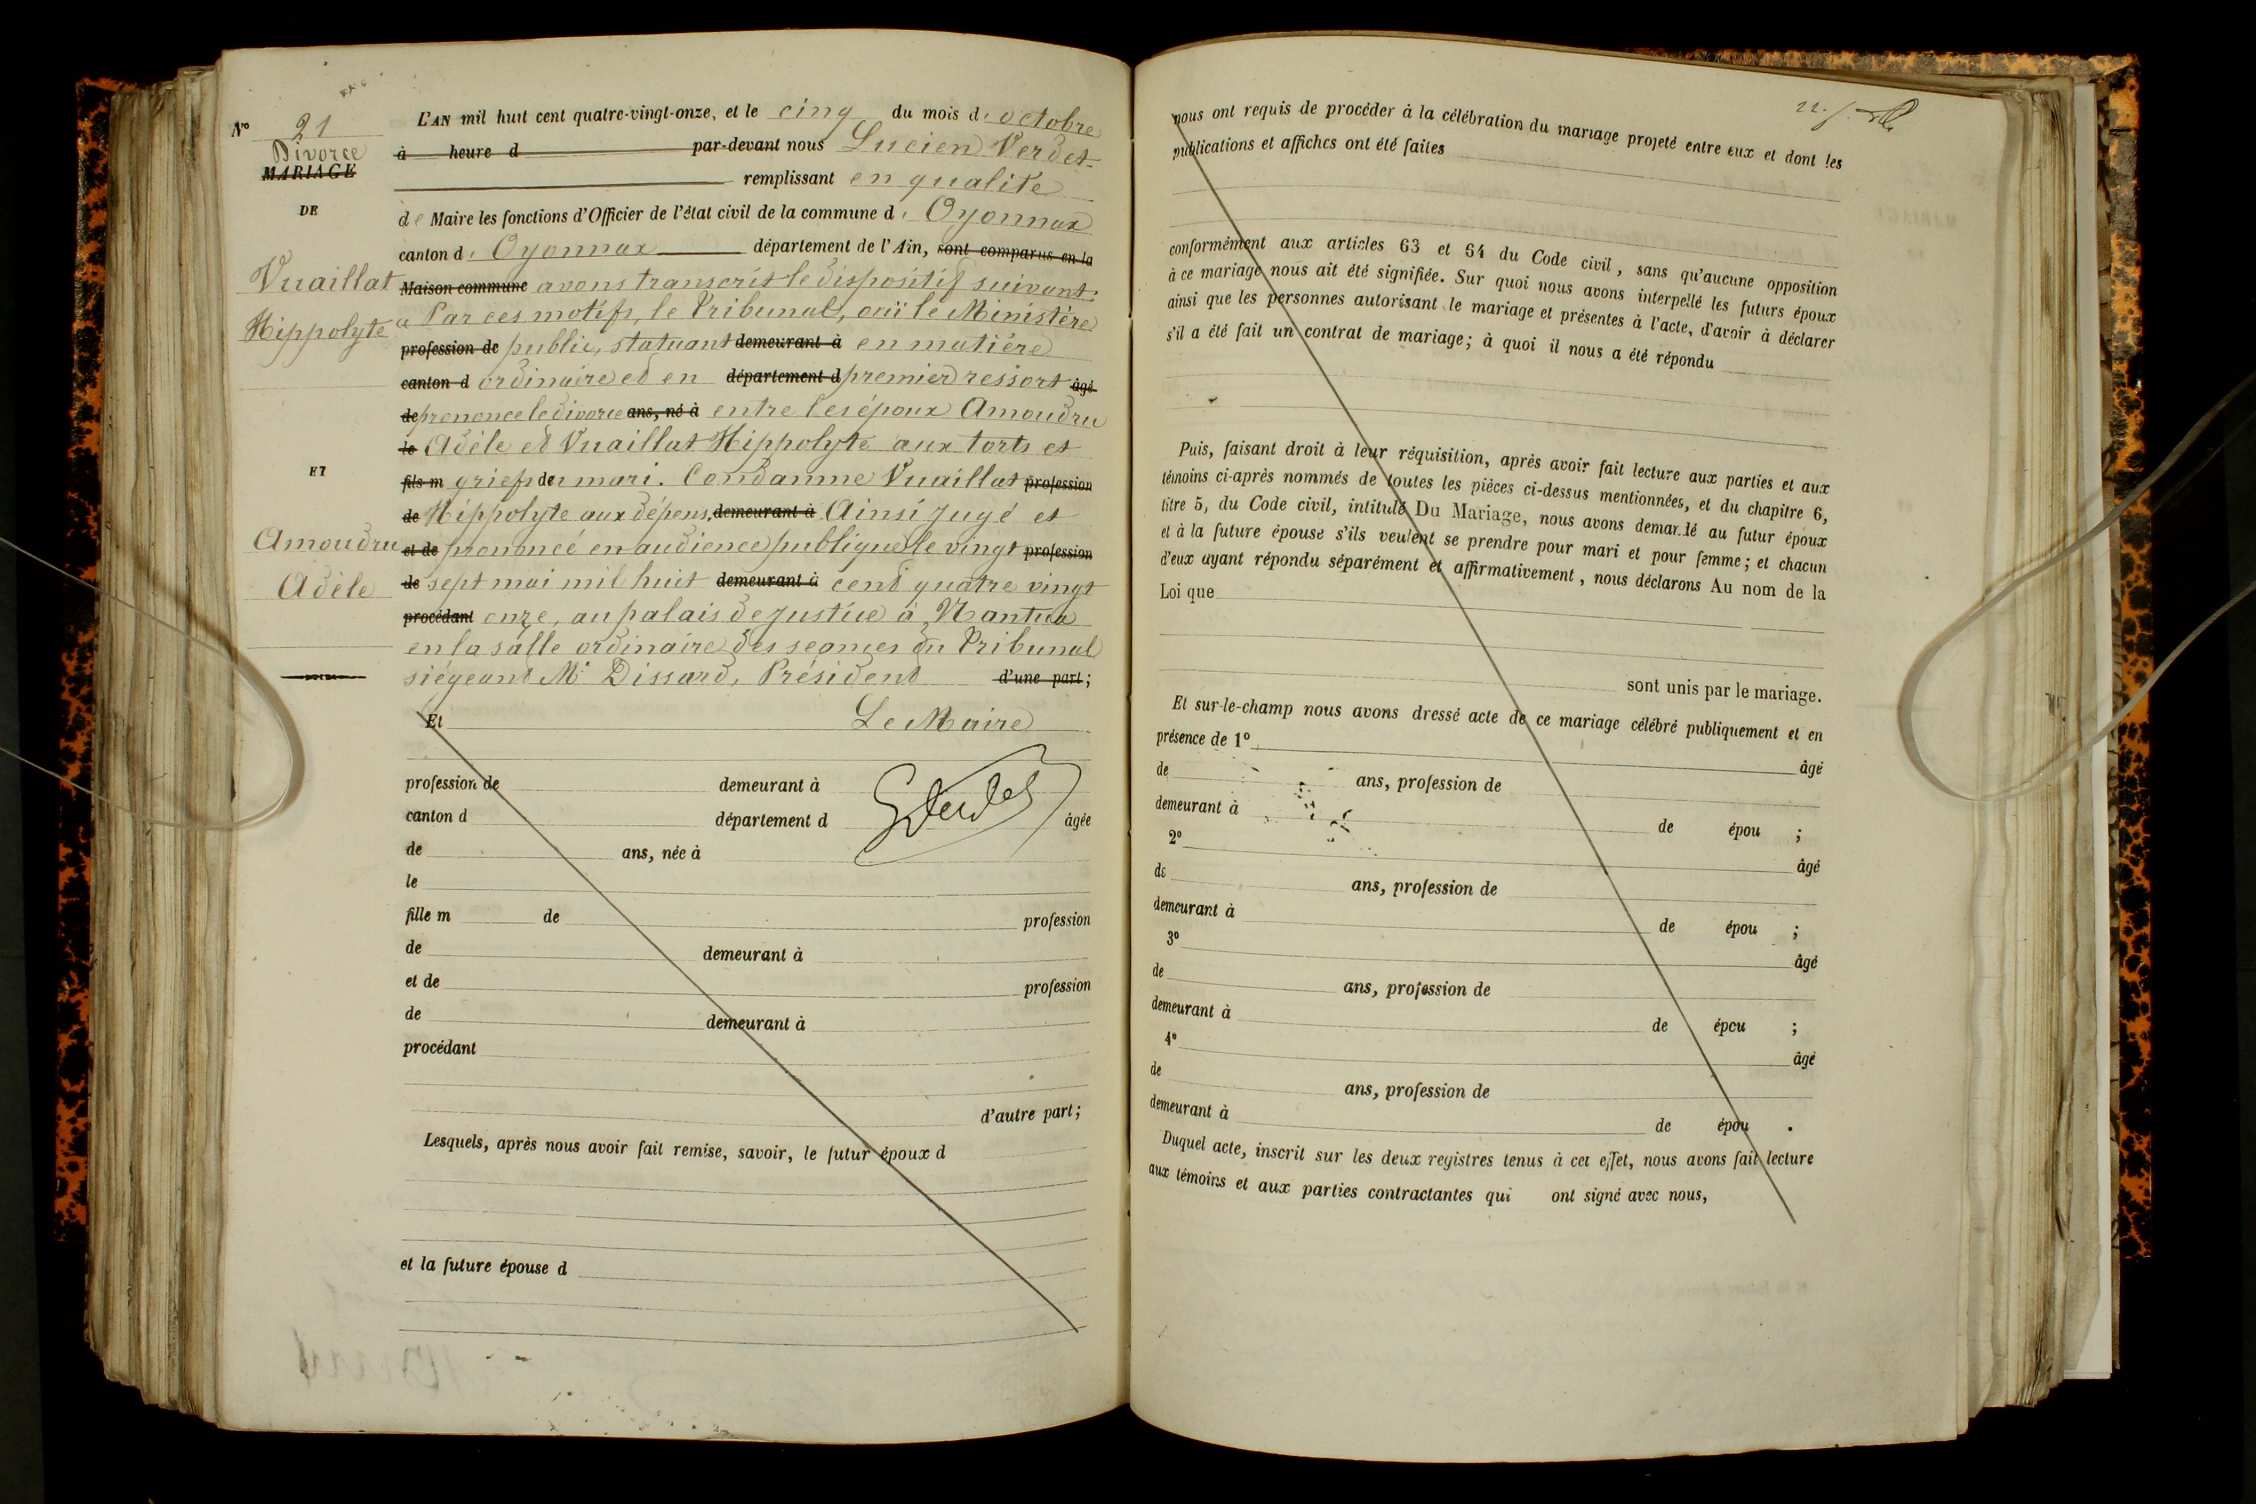 Nº 21
Divorce
MARIAGE
DE
Vuaillat
Hippolyte
ET
Amoudru
Adèle
L'AN mil huit cent quatre-vingt-onze, et le cinq du mois d'octobre
à heure d par-devant nous Lucien Verdet
remplissant en qualité
de Maire les fonctions d'Officier de l'état civil de la commune d'Oyonnax
canton d'Oyonnax département de l'Ain, sont comparus en la
Maison commune avons transcrit le dispositif suivant:
« Par ces motifs, le Tribunal, ouï le Ministère
profession de public, statuant demeurant à en matière
canton d ordinaire et en département d premier ressort âgé
de prononce le divorce ans, né à entre les époux Amoudru
le Adèle et Vuaillat Hippolyte aux torts et
fils m griefs de mari. Condamne Vuaillat profession
de Hippolyte aux dépens. demeurant à Ainsi jugé et
et de prononcé en audience publique le vingt profession
de sept mai mil huit demeurant à cent quatre vingt
procédant onze, au palais de justice à Nantua
en la salle ordinaire des seances du Tribunal
siégeant Mr Dissard, Président d'une part;
Et Le Maire
profession de demeurant à
canton d département d âgée
de ans, née à
le
fille m de profession
de demeurant à
et de profession
de demeurant à
procédant
d'autre part;
Lesquels, après nous avoir fait remise, savoir, le futur époux d
et la future épouse d
nous ont requis de procéder à la célébration du mariage projeté entre eux et dont les
publications et affiches ont été faites
conformément aux articles 63 et 64 du Code civil, sans qu'aucune opposition
à ce mariage nous ait été signifiée. Sur quoi nous avons interpellé les futurs époux
ainsi que les personnes autorisant le mariage et présentes à l'acte, d'avoir à déclarer
s'il a été fait un contrat de mariage; à quoi il nous a été répondu
Puis, faisant droit à leur réquisition, après avoir fait lecture aux parties et aux
témoins ci-après nommés de toutes les pièces ci-dessus mentionnées, et du chapitre 6,
titre 5, du Code civil, intitulé Du Mariage, nous avons demandé au futur époux
et à la future épouse s'ils veulent se prendre pour mari et pour femme; et chacun
d'eux ayant répondu séparément et affirmativement, nous déclarons Au nom de la
Loi que
sont unis par le mariage.
Et sur-le-champ nous avons dressé acte de ce mariage célébré publiquement et en
présence de 1º âgé
de ans, profession de
demeurant à de épou ;
2º âgé
de ans, profession de
demeurant à de épou ;
3º âgé
de ans, profession de
demeurant à de épou ;
4º âgé
de ans, profession de
demeurant à de épou .
Duquel acte, inscrit sur les deux registres tenus à cet effet, nous avons fait lecture
aux témoins et aux parties contractantes qui ont signé avec nous,